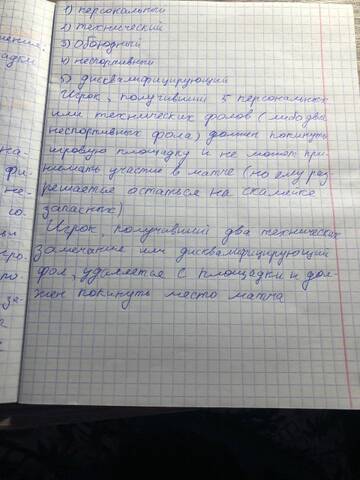 1) персональный
2) технический
3) Обоюдный
4) неспортивный
5) дисквалифицирующий
Игрок, получивший 5 персональных
или технических фолов (либо два
неспортивных фола) должен покинуть
игровую площадку и не может при-
нимать участие в матче (но ему раз-
решается остаться на скамейке
запасных)
Игрок, получивший два технических
замечание или дисквалифицирующий
фол, удаляется с площадки и дол-
жен покинуть место матча